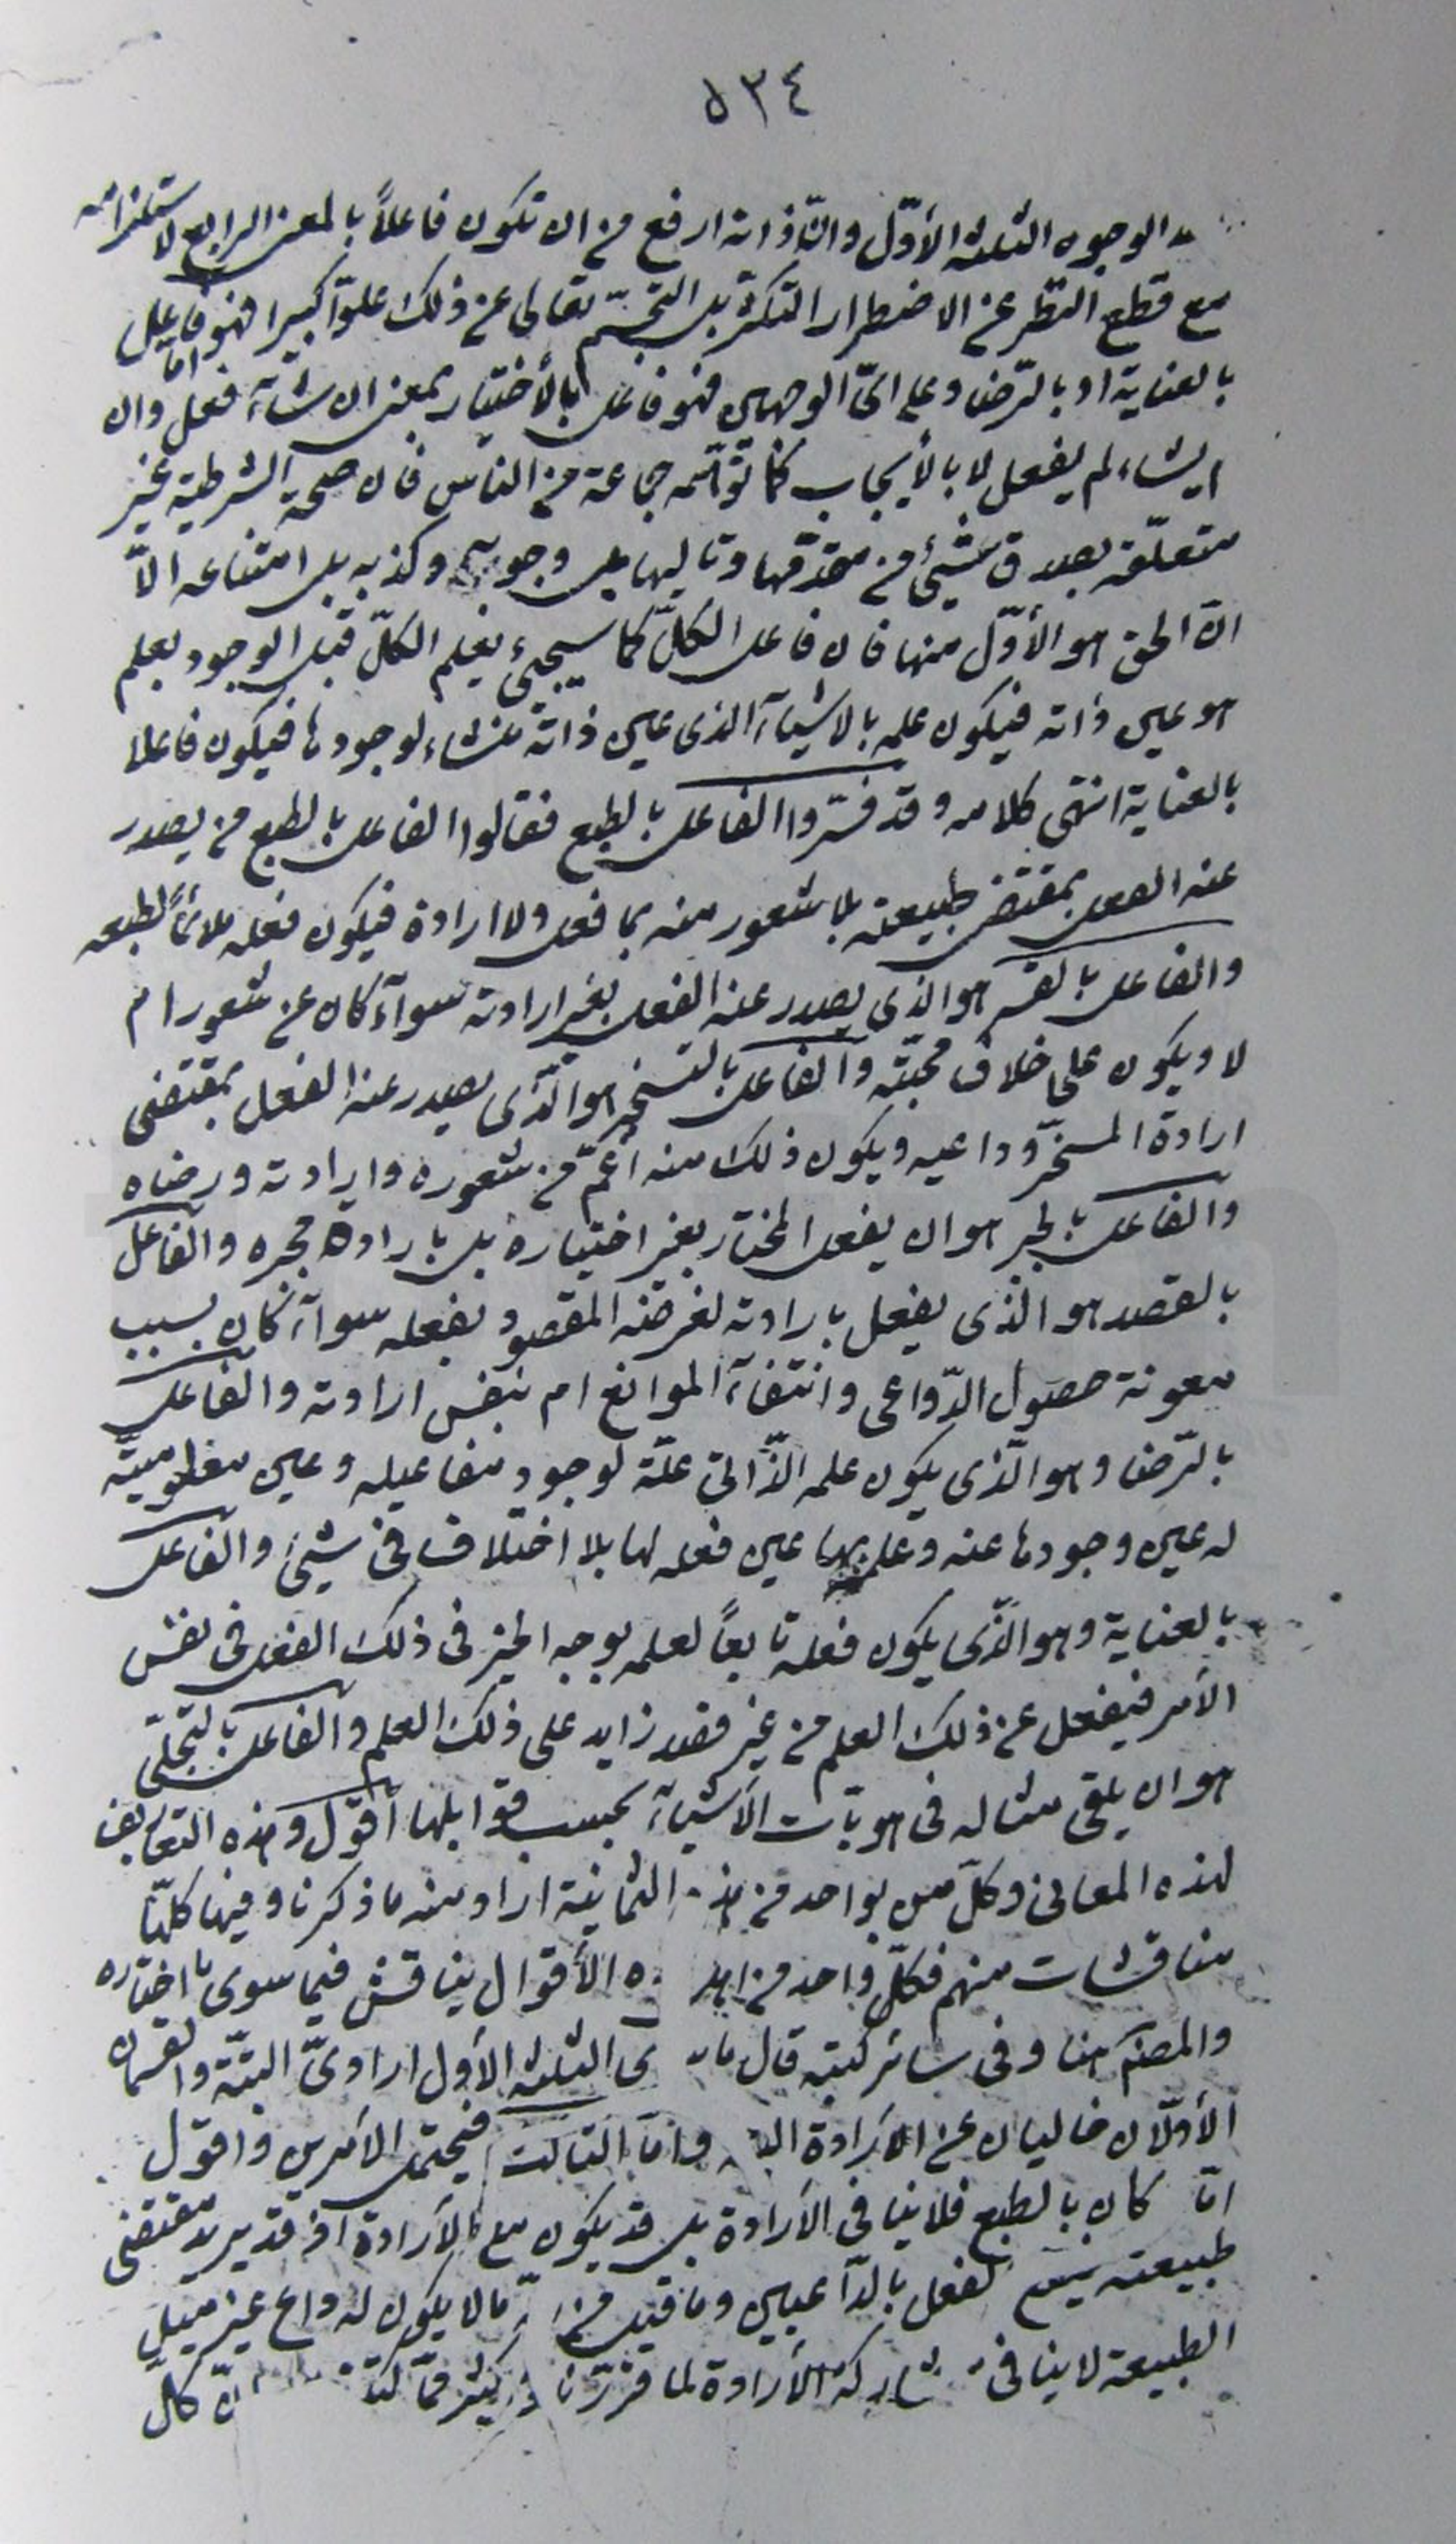 ٥٣٤
الوجوه الثلثة الأوّل وانّ ذاته ارفع من ان تكون فاعلاً بالمعنى الرابع لاستلزامه
مع قطع النّظر عن الاضطرار التكثّر بل التجسّم تعالى عن ذلك علوّاً كبيرا فهو فاعل امّا
بالعناية او بالرّضا وعلى ايّ الوجهين فهو فاعل بالأختيار بمعنى ان شآء فعل وان
لم يشاء لم يفعل لا بالأيجاب كما توهّمه جماعة من الناس فان صحة الشرطية غير
متعلّقة بصدق شيئ من مقدّمها وتاليها بل وجوبه وكذبه بل امتناعه الاّ
انّ الحق هو الأوّل منها فان فاعل الكلّ كما سيجيئ يعلم الكلّ قبل الوجود بعلم
هو عين ذاته فيكون علمه بالاشيآء الذى عين ذاته منشاء لوجودها فيكون فاعلا
بالعناية انتهى كلامه وقد فسّروا الفاعل بالطبع فقالوا الفاعل بالطبع من يصدر
عنه الفعل بمقتضى طبيعته بلا شعور منه بما فعل ولا ارادة فيكون فعله ملائماً لطبعه
والفاعل بالقسر هو الذى يصدر عنه الفعل بغير ارادته سوآء كان عن شعور ام
لا ويكون على خلاف محبّته والفاعل بالتسخير هو الّذى يصدر عنه الفعل بمقتضى
ارادة المسخّر وداعيه ويكون ذلك منه اعمّ من شعوره وارادته ورضاه
والفاعل بالجبر هو ان يفعل المختار بغير اختياره بل بارادة مجبره والفاعل
بالقصد هو الذى يفعل بارادته لغرضه المقصود بفعله سوآء كان بسبب
معونة حصول الدّواعى وانتفآء الموانع ام بنفس ارادته والفاعل
بالرّضا وهو الّذى يكون علمه الذّاتى علّة لوجود مفاعيله وعين معلوميّته
له عين وجودها عنه وعلمه بها عين فعله لها بلا اختلاف فى شيئ والفاعل
بالعناية وهو الّذى يكون فعله تابعاً لعلمه بوجه الخير فى ذلك الفعل فى نفس
الأمر فيفعل عن ذلك العلم من غير قصد زايد على ذلك العلم والفاعل بالتجلّى
هو ان يلقى مثاله فى هويّات الأشيآء بحسب قوابلها اقول وهذه التعاريف
لهذه المعانى وكلّ من بواحد من هذه الثمانية اراد منه ما ذكرنا وفيها كلّها
مناقشات منهم فكلّ واحد من اهل هذه الأقوال يناقش فيما سوى ما اختاره
والمصنّف هنا وفى سائر كتبه قال ما سوى الثلثة الأول ارادىّ البتّة والقسمان
الأوّلان خاليان عن الأرادة البتة وامّا الثالث فيحتمل الأمرين واقول
امّا كان بالطبع فلا ينافى الأرادة بل قد يكون مع الأرادة اذ قد يريد مقتضى
طبيعته الفعل بالدّاعيين وما قيل من ما لا يكون له داع غير ميل
الطبيعة لا ينافى مشاركة الأرادة لما قرّرنا كلّ